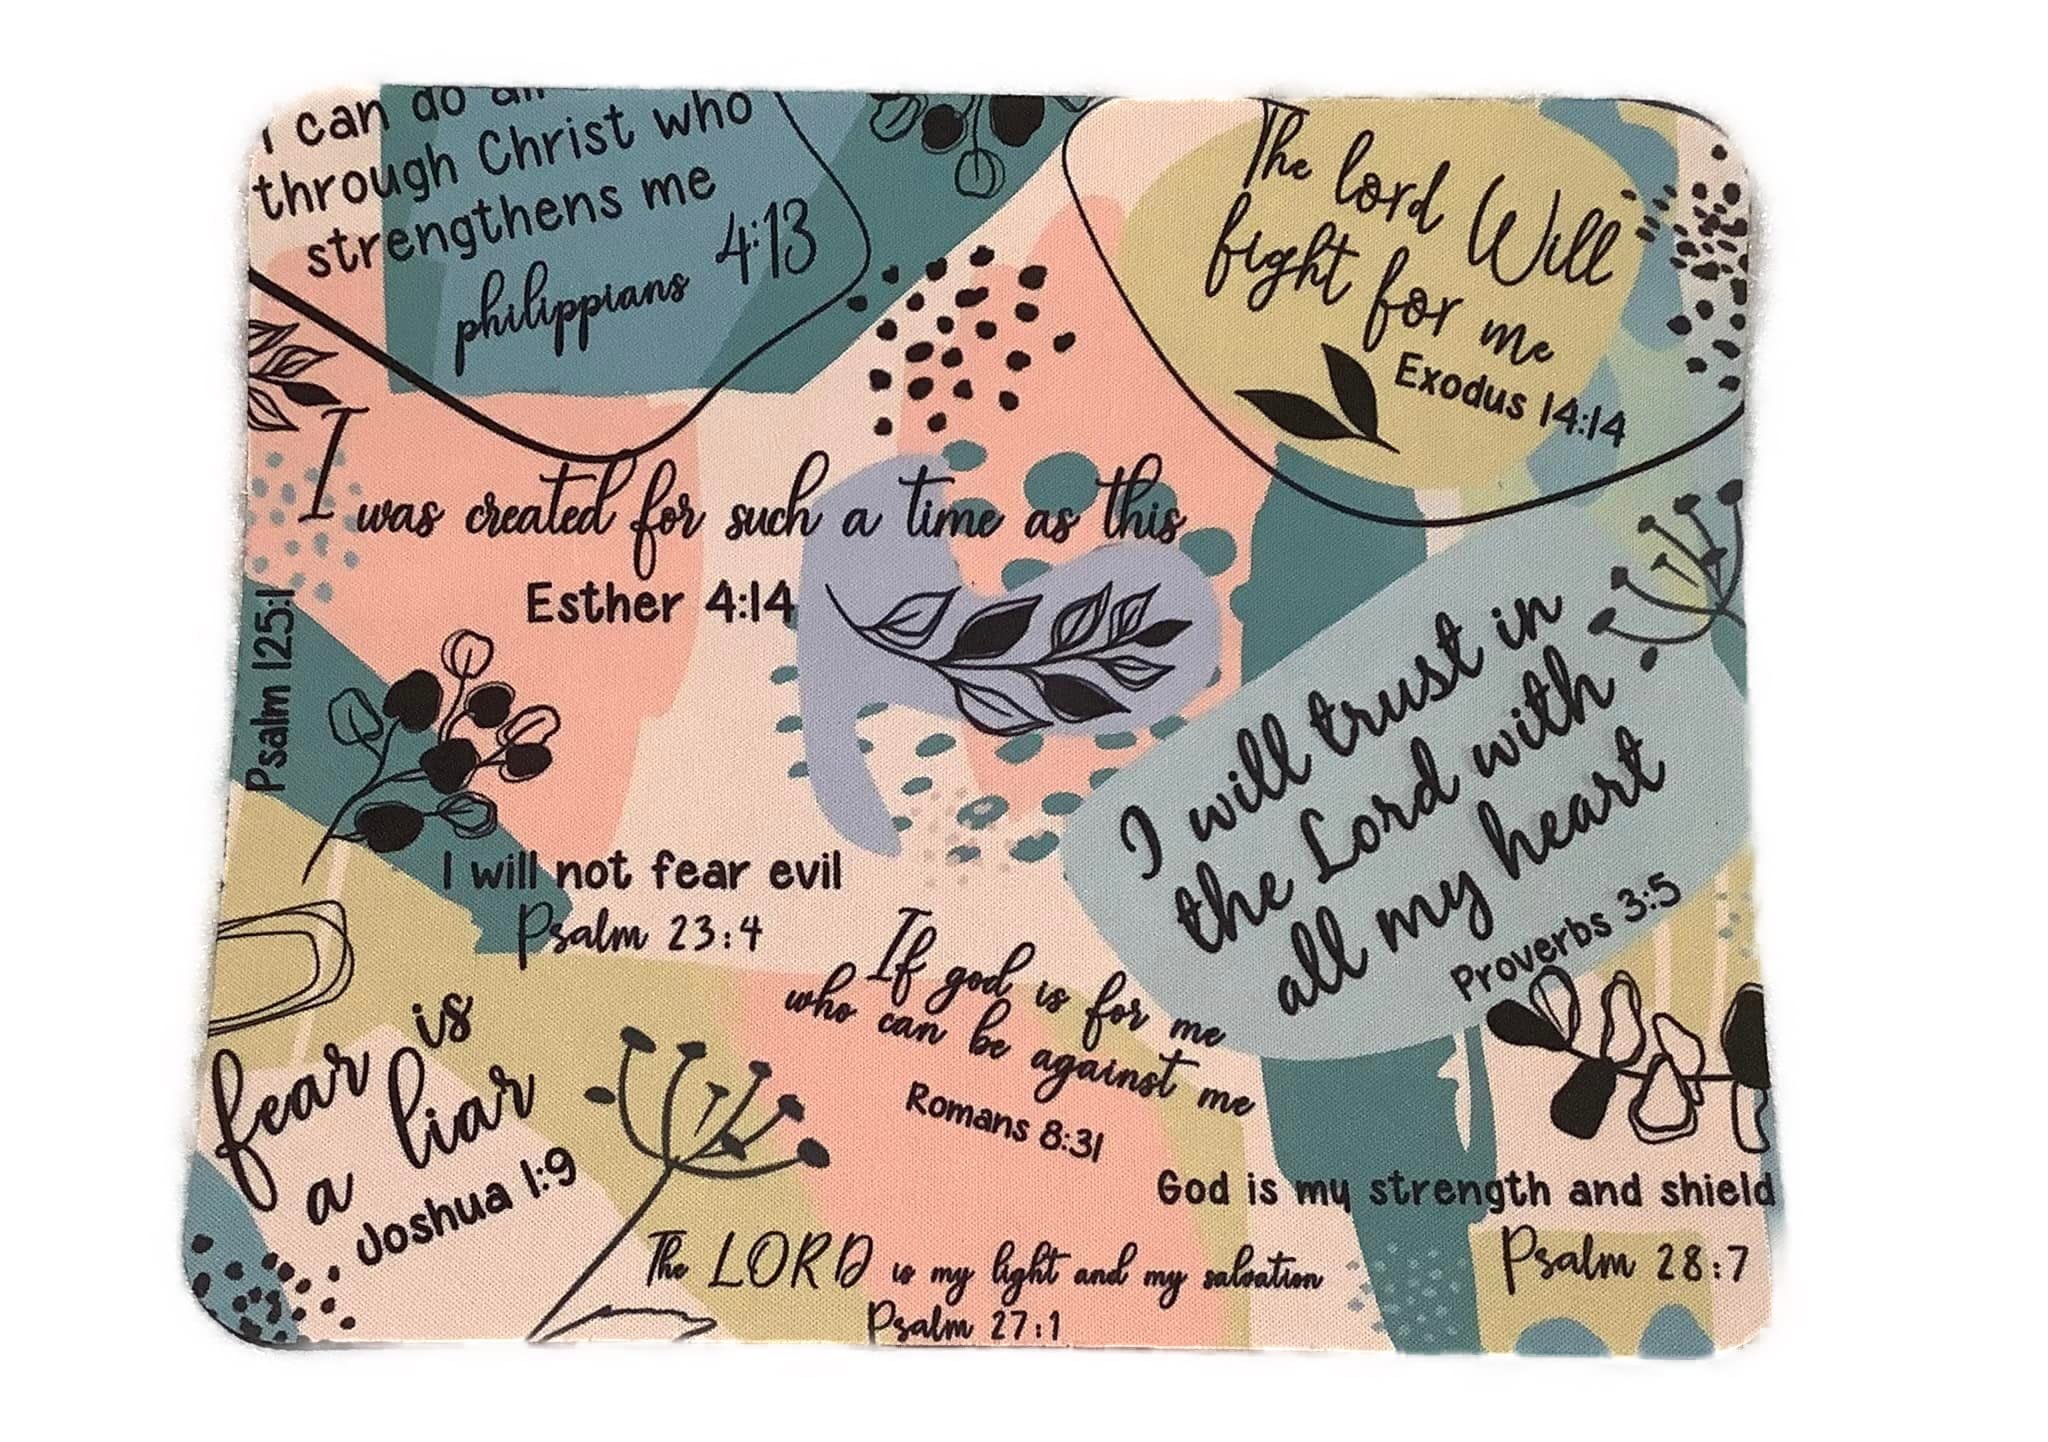 I can do all
through Christ who
strengthens me
philippians 4:13
The lord Will
fight for me
Exodus 14:14
I was created for such a time as this
Esther 4:14
Psalm 125:1
I will trust in
the Lord with
all my heart
Proverbs 3:5
I will not fear evil
Psalm 23:4
If god is for me
who can be against me
Romans 8:31
fear is
a liar
Joshua 1:9
God is my strength and shield
Psalm 28:7
The LORD is my light and my salvation
Psalm 27:1